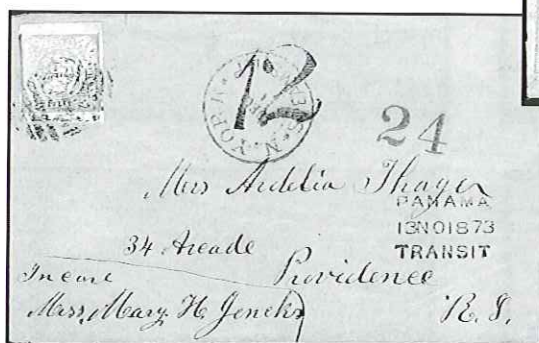 12
N. YORK
STEAMSHIP
24
Mrs Ardelia Thayer
PANAMA
13NO1873
TRANSIT
34 Arcade
Providence
In care
Miss, Mary H Jencks
R. I.